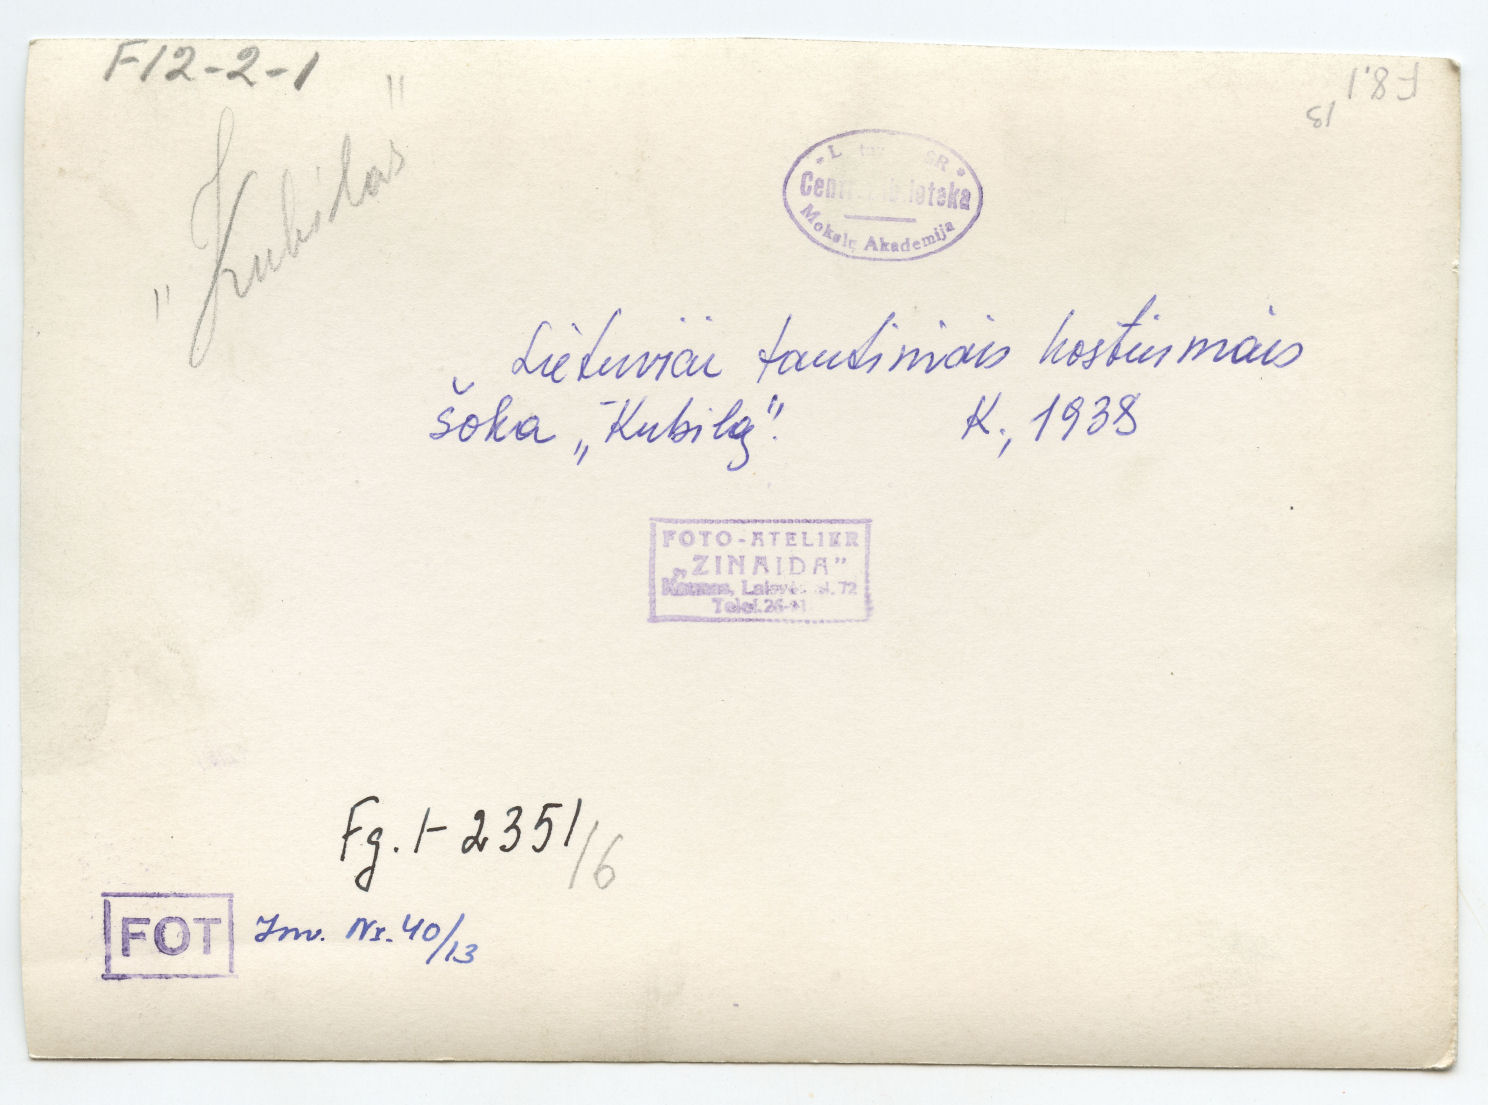 F12-2-1
F 8.1
13
"Kubilas"
Centr. Biblioteka
Mokslų Akademija
Lietuviai tautiniais kostiumais
šoka „Kubilą". K., 1938
FOTO-ATELIER
„ZINAIDA"
Kaunas, Laisvės al. 72
Telef. 26-
Fg. 1-2351/6
FOT Inv. Nr. 40/13